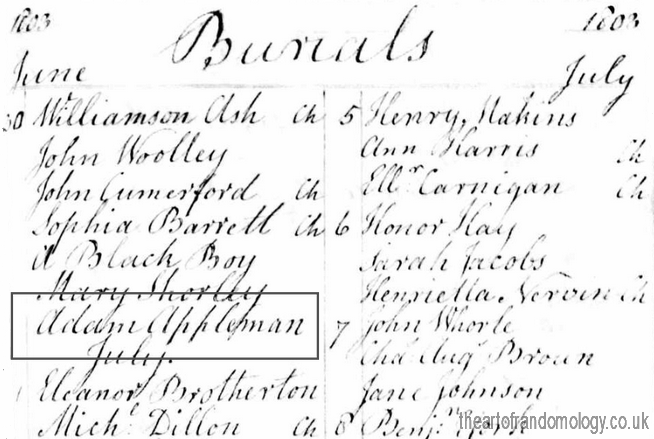 1803
Burials
1803
June
30 Willmson Ash Ch
John Woolley
John Cumerford Ch
Sophia Barrett Ch
A Black Boy
Mary Shorley
Adam Appleman
July.
1 Eleanor Brotherton
Michl. Dillon Ch
July
5 Henry Makins
Ann Harris Ch
Ellr. Carnigan Ch
6 Honor Hay
Sarah Jacobs
Henrietta Nervin Ch
7 John Whorle
Chas. Augs. Brown
Jane Johnson
8 Benjn. York
theartofrandomology.co.uk